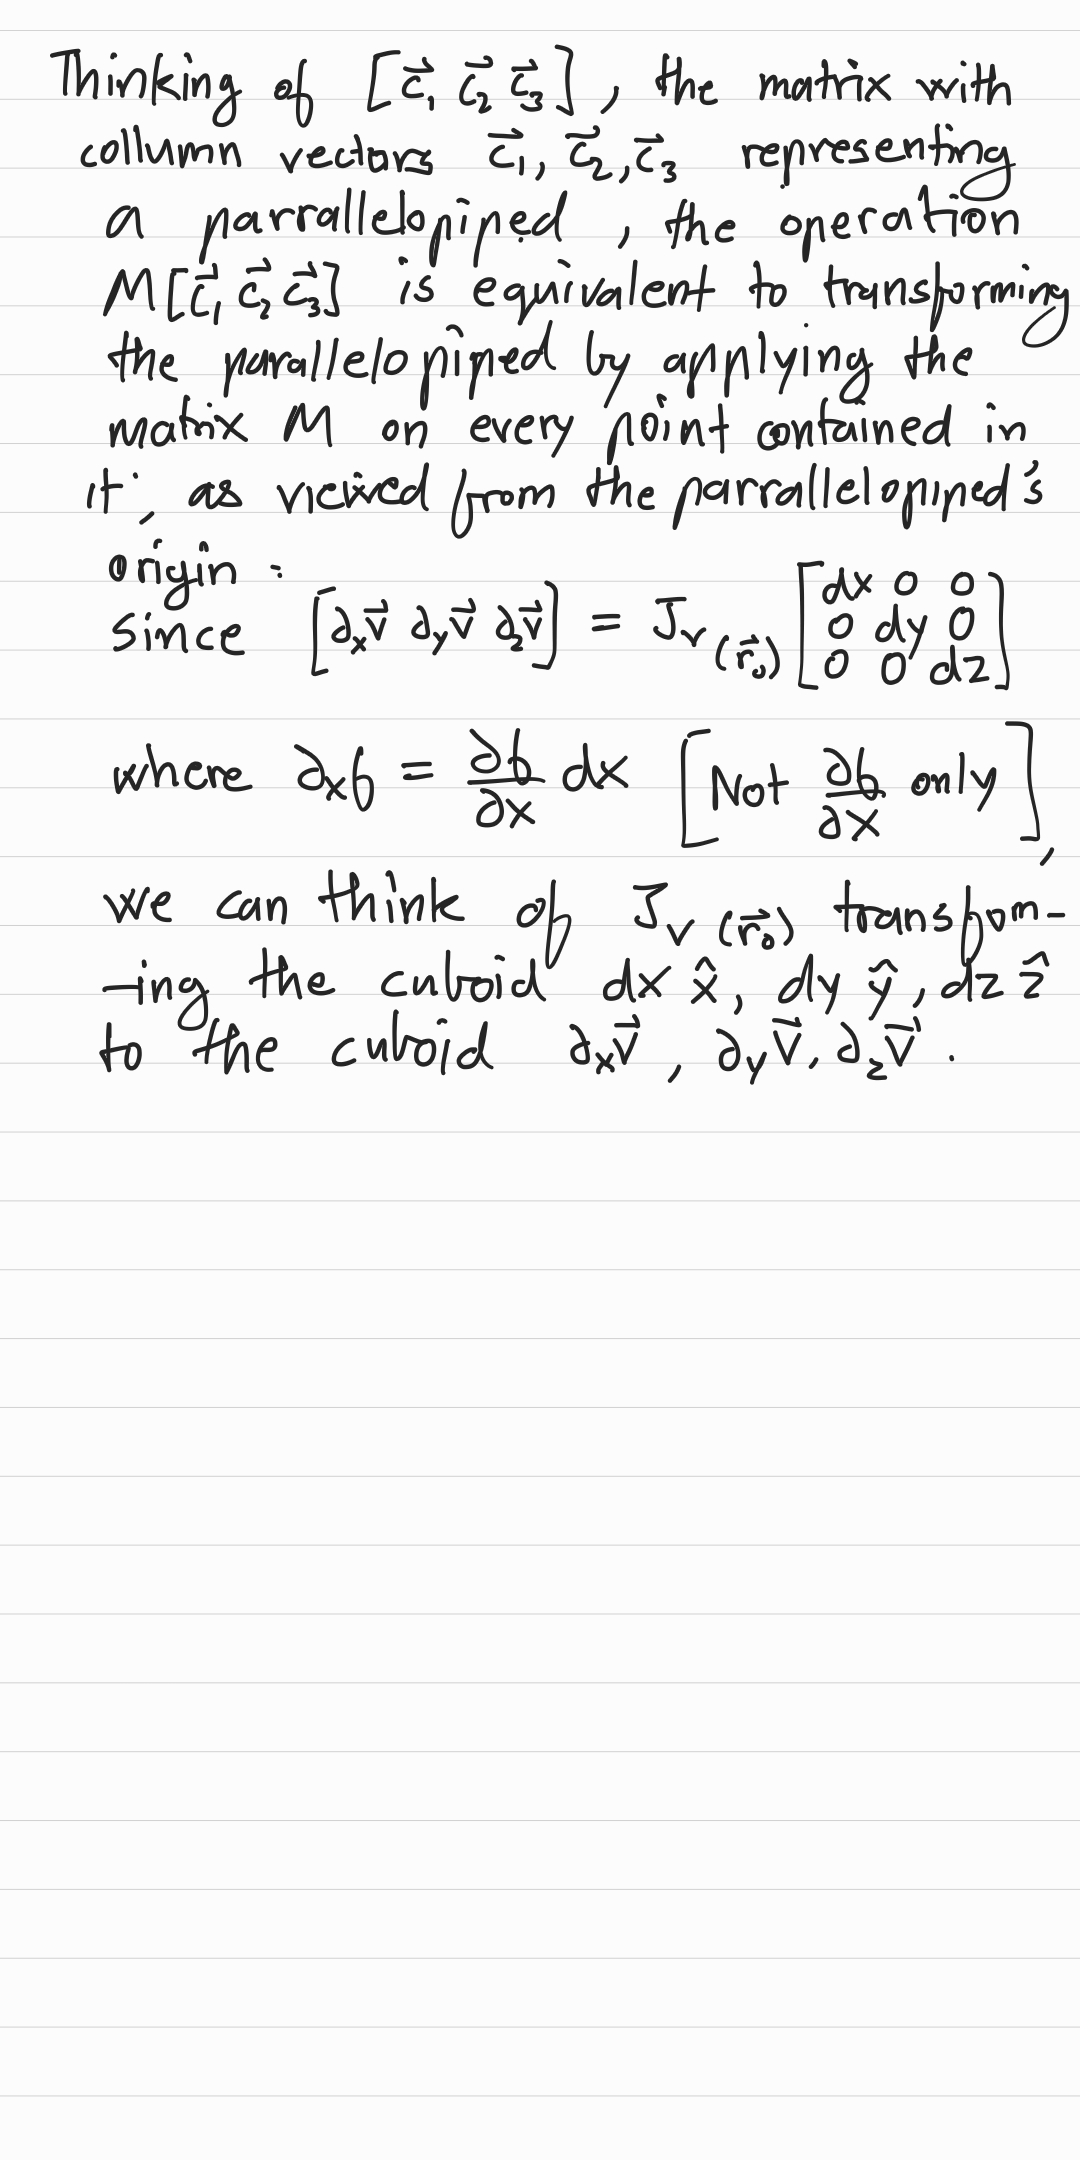 Thinking of [c⃗₁ c⃗₂ c⃗₃], the matrix with
collumn vectors c⃗₁, c⃗₂, c⃗₃ representing
a parralelopiped, the operation
M[c⃗₁ c⃗₂ c⃗₃] is equivalent to transforming
the parallelopiped by applying the
matrix M on every point contained in
it, as viewed from the parrallelopiped's
origin.
since [∂ₓv⃗ ∂ᵧv⃗ ∂_z v⃗] = J_v(r⃗₀) [dx 0 0
0 dy 0
0 0 dz]
where ∂ₓf = ∂f/∂x dx [Not ∂f/∂x only],
we can think of J_v(r⃗₀) transform-
-ing the cuboid dx x̂, dy ŷ, dz ẑ
to the cuboid ∂ₓv⃗, ∂ᵧv⃗, ∂_z v⃗.